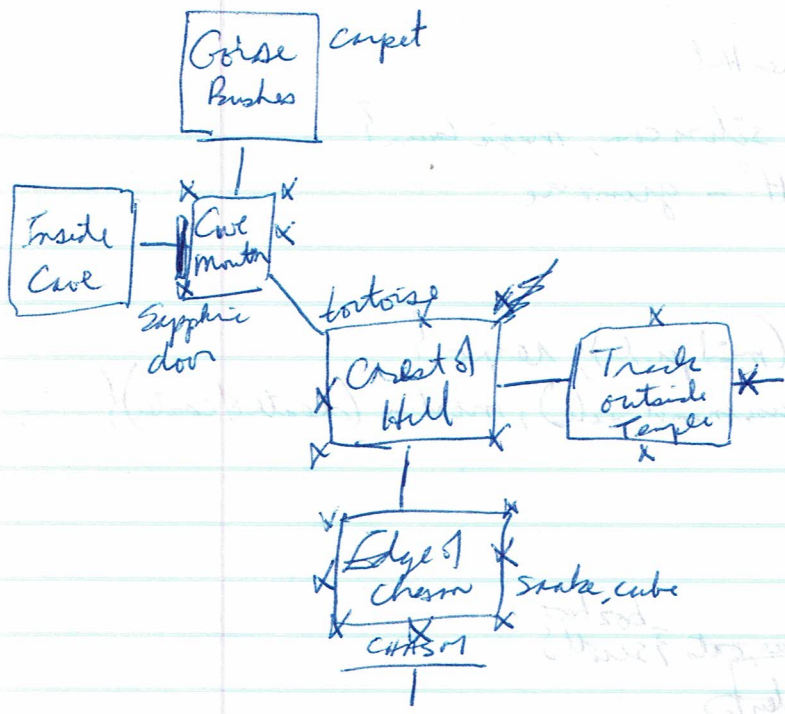 Gorse
Bushes
carpet
Inside
Cave
Cave
Mouth
Sapphire
door
tortoise
Crest of
Hill
Track
outside
Temple
Edge of
Chasm
snake, cube
CHASM